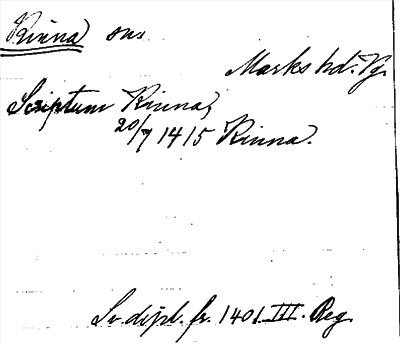 Kinna sn.
Marks hd. Vg.
Scriptum Kinna,
20/7 1415 Kinna.
Sv. dipl. fr. 1401. III. Reg.